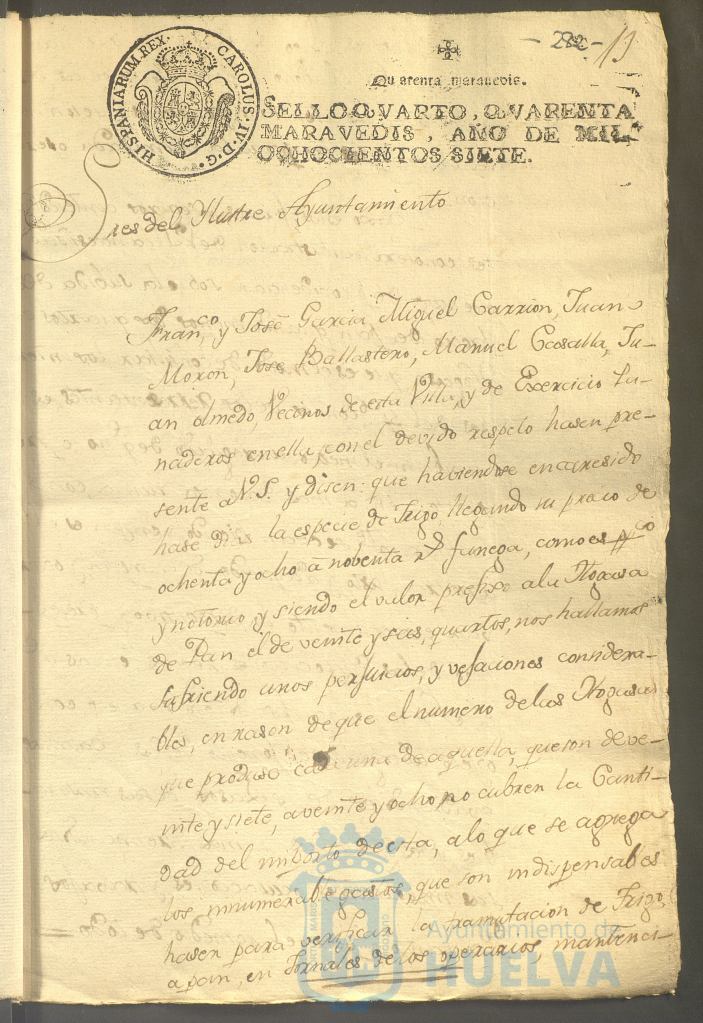 -282- 13
HISPANIARUM REX. CAROLUS. IV. D. G.
Quarenta maravedis.
SELLO QVARTO, QVARENTA
MARAVEDIS, AÑO DE MIL
OCHOCIENTOS SIETE.
Sres del Ylustre Ayuntamiento
Franco, y José Garcia, Miguel Carrion, Juan
Moron, Jose Ballastero, Manuel Cosalla, Ju-
an Olmedo, Vecinos de esta Villa, y de Exercicio Pa-
naderos en ella, con el devido respeto hasen pre-
sente a V.S. y disen: que haviendose encaresido
hase la especie de Trigo llegando su precio de
ochenta y ocho a nobenta rs fanega, como es ppco
y notorio y siendo el valor prefixo a la Hogasa
de Pan el de veinte y seis quartos, nos hallamos
sufriendo unos perjuicios, y vejaciones considera-
bles, en rason de que el numero de las Hogasas
que produse cada una de aquella, que son de ve-
inte y siete, a veinte y ocho no cubren la Canti-
dad del importe de esta, a lo que se agrega
los innumerables gastos, que son indispensables
hasen para verificar la tramutacion de Trigo
a pan, en Jornales de los operarios, mantenci-
Ayuntamiento de
HUELVA